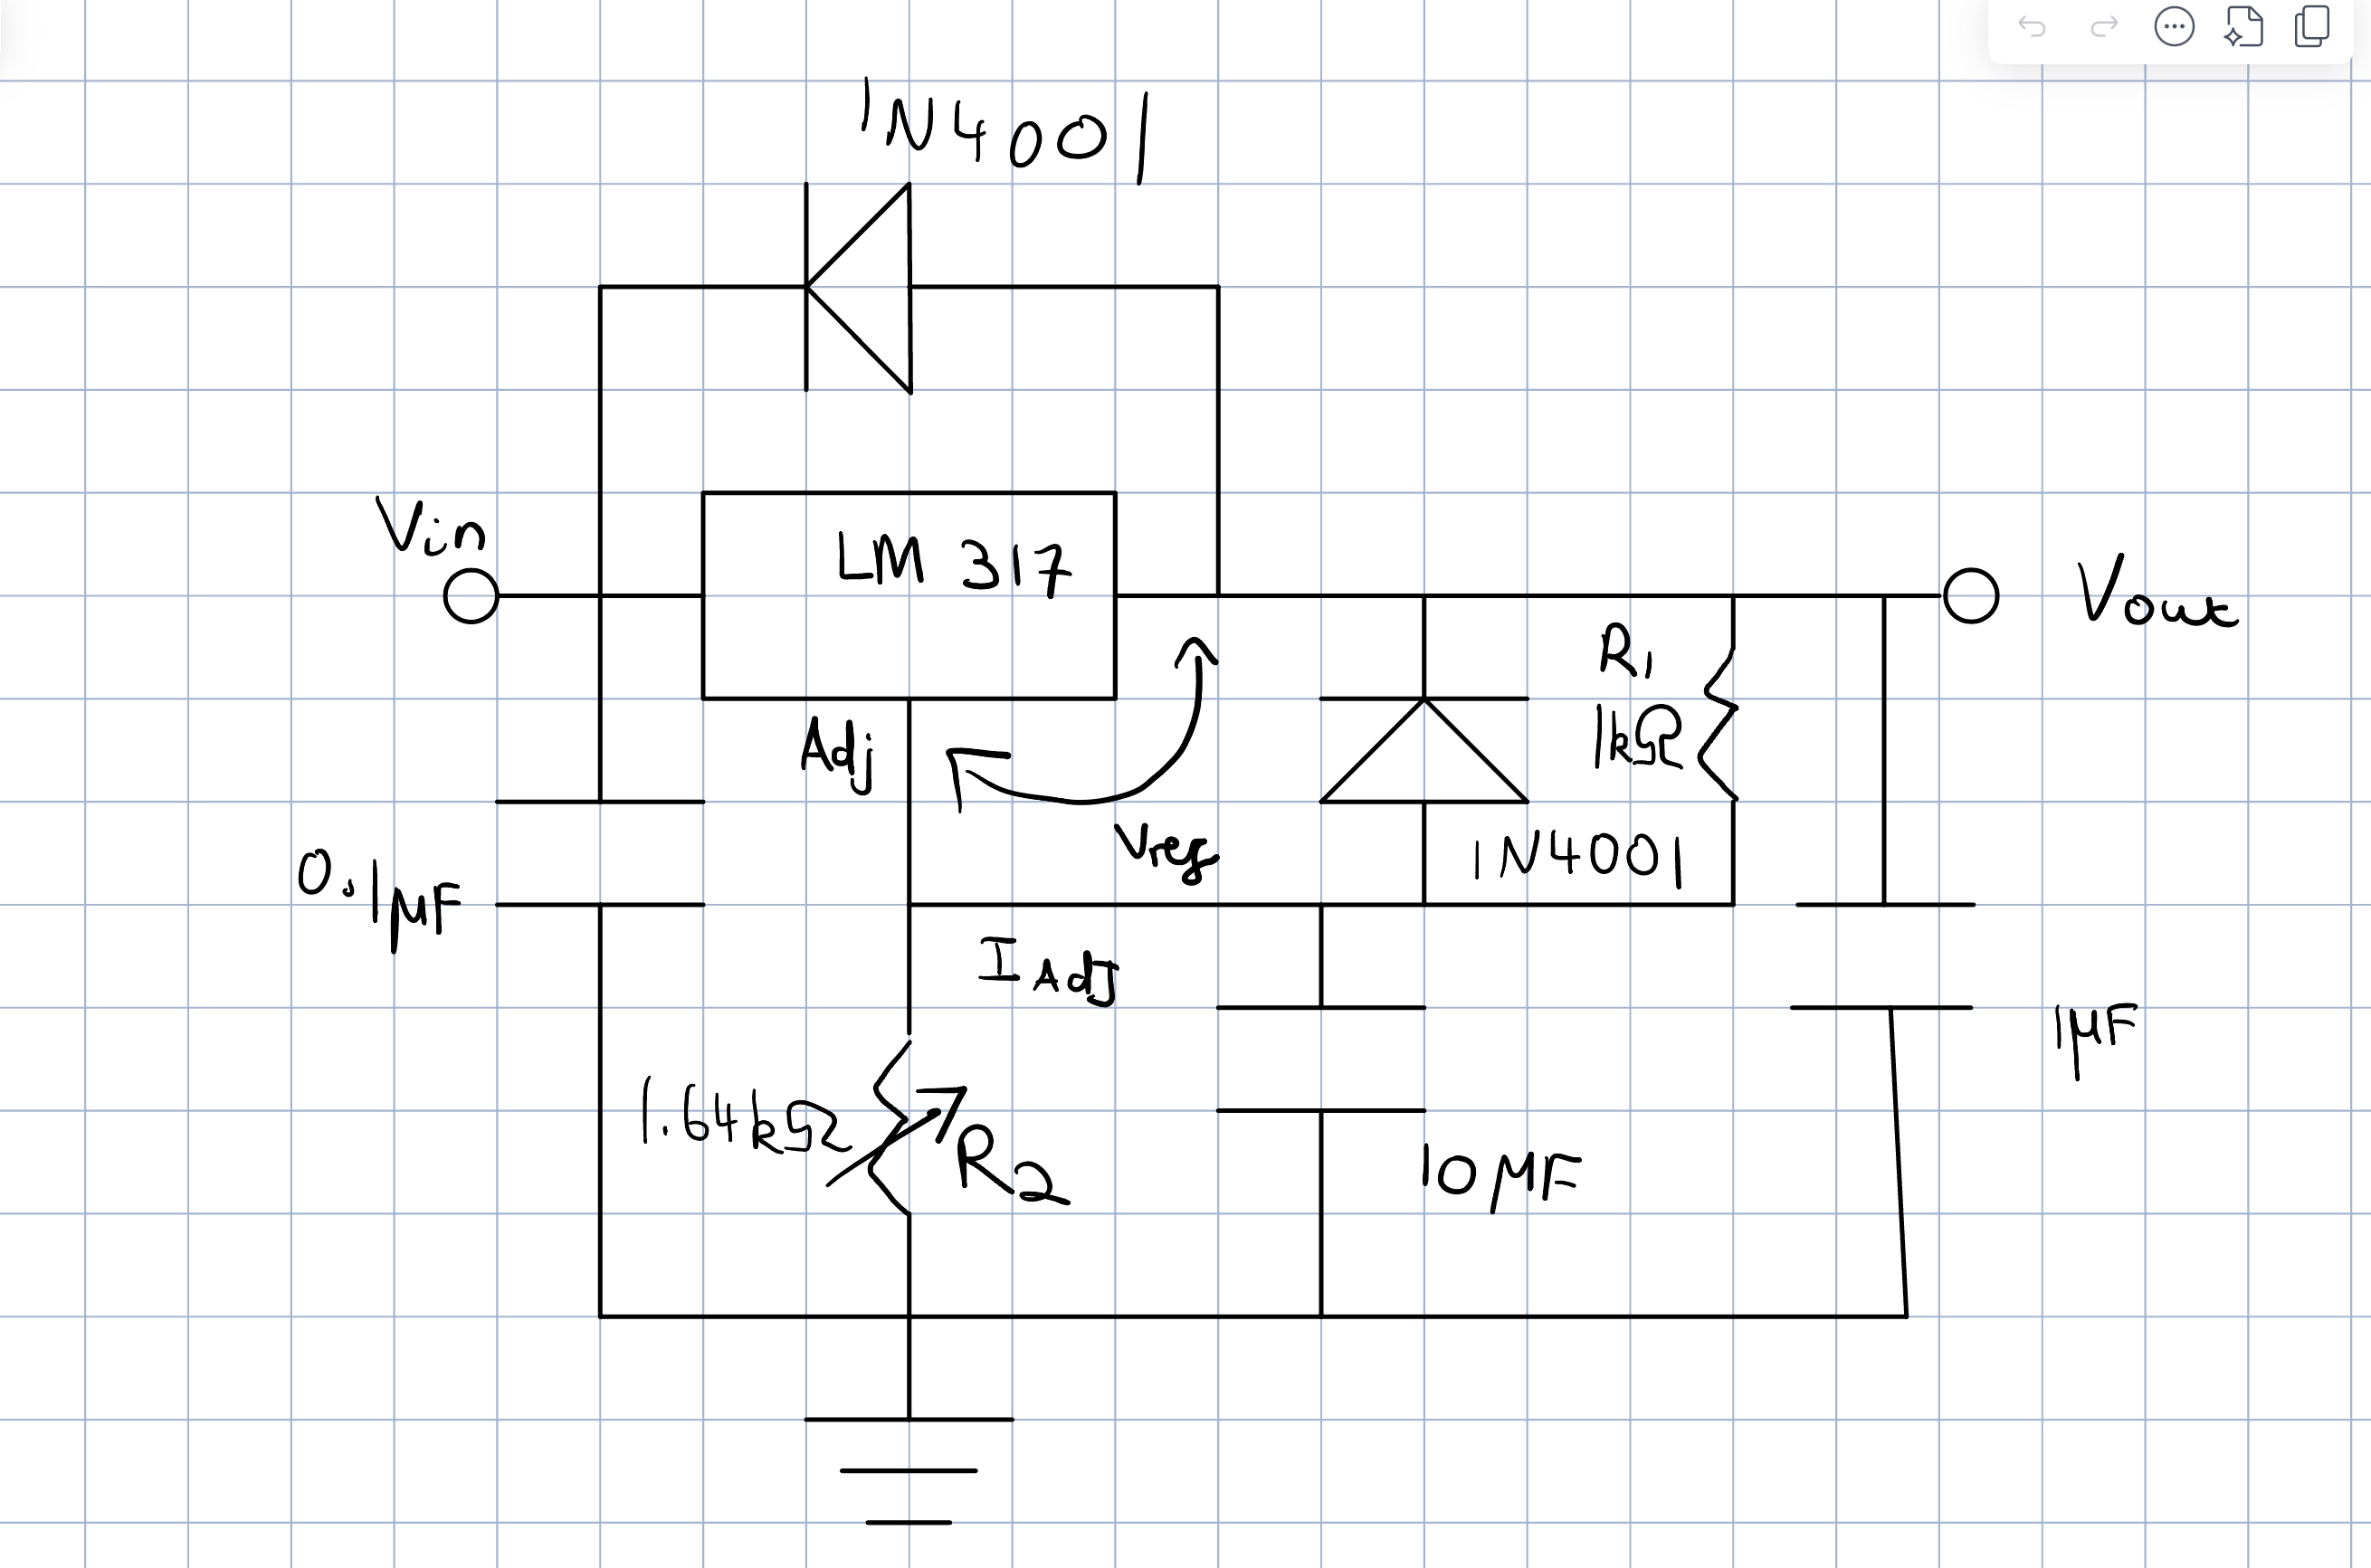 1N4001
Vin
LM 317
Vout
R1
1kΩ
Adj
Vreg
1N4001
0.1μF
IAdj
1μF
1.64kΩ
R2
10μF